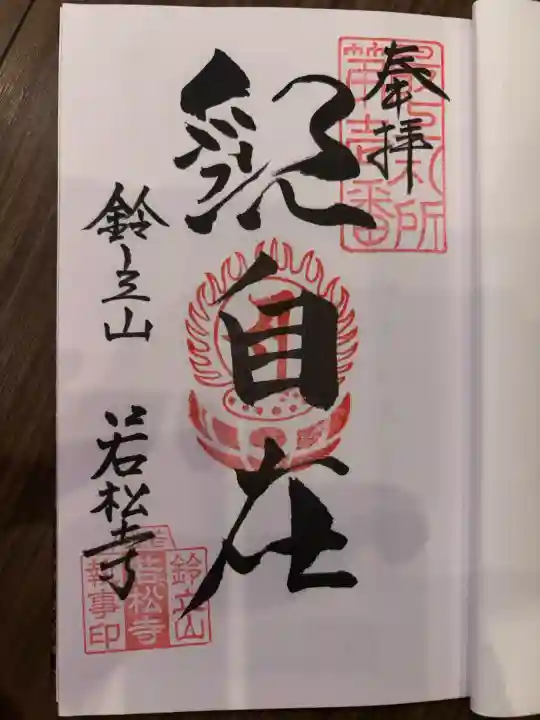 奉拝
最上札所
第壹番
観自在
鈴立山
若松寺
鈴立山
若松寺
執事印